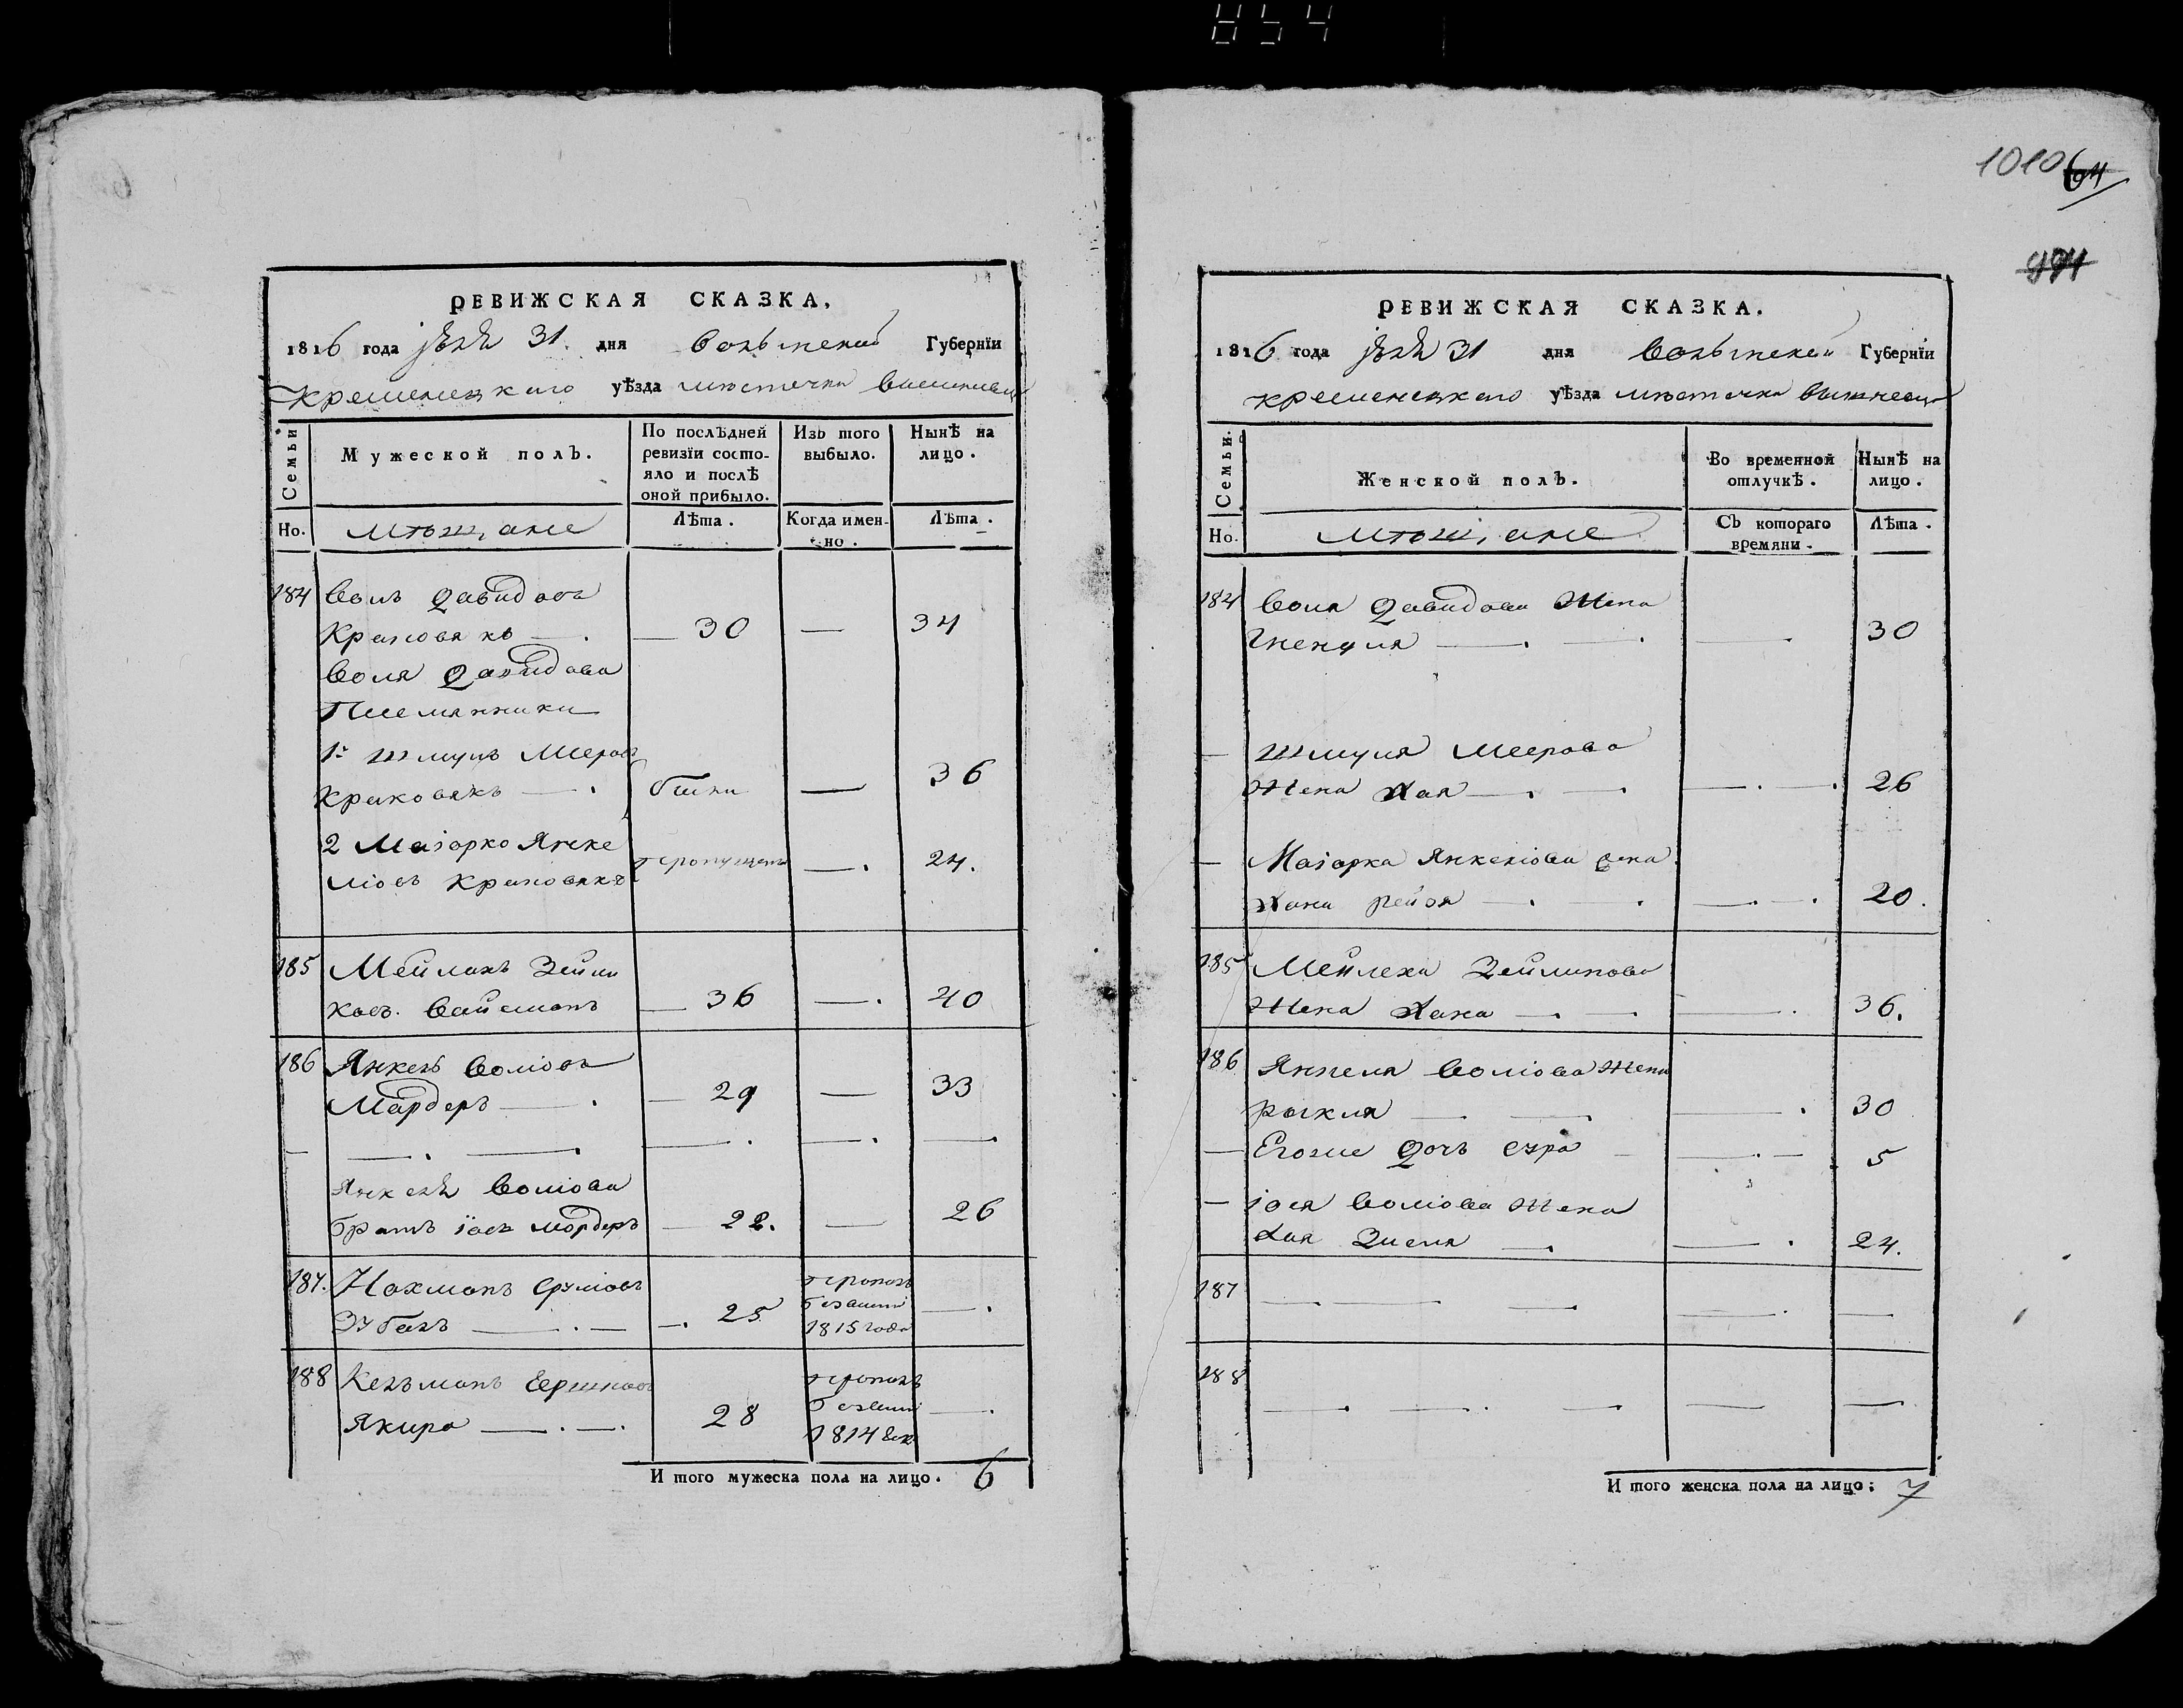 854
РЕВИЖСКАЯ СКАЗКА.
1816 года іюля 31. дня Волынской Губернїи
Кременецкаго уѣзда мѣстечка Вишневца
Семьи
Мужеской полъ.
По послѣдней ревизїи состояло и послѣ оной прибыло.
Изъ того выбыло.
Нынѣ на лицо.
Но.
мѣщане
Лѣта.
Когда именно.
Лѣта.
184 Волъ Давидовъ
Краковякъ — 30 — 34
Воля Давидова
Племянники
1й Шмуль Меров
Краковякъ — бѣжи — 36
2 Маіорко Янке
ліовъ Краковякъ пропущенъ — 24.
185 Мейлахъ Зейли
ковъ. Вайсманъ — 36 — 40
186 Янкель Воліовъ
Мардеръ — 29 — 33
Янкеля Воліова
братъ Іосъ Мордеръ — 22. — 26
187. Нахманъ Сруліовъ
— 25 — пропалъ
безвести
1815 года
188 Кельманъ Ершковъ
Якира — 28 пропалъ
безвести
1814
И того мужеска пола на лицо. 6
1010 604
994
РЕВИЖСКАЯ СКАЗКА.
1816 года іюля 31 дня Волынской Губернїи
Кременецкаго уѣзда мѣстечка Вишневца
Семьи.
Женской полъ.
Во временной отлучкѣ.
Нынѣ на лицо.
Но.
мѣщане
Съ котораго времяни.
Лѣта.
184 Воля Давидова Жена
Гнендля — 30
— Шмуля Меерова
Жена Хая — 26
— Маіорка Янкеліова жена
Хана Рейзя — 20.
185 Мейлеха Зейликова
Жена Хана — 36.
186 Янкеля Воліова Жена
Рыкля — 30
— Егоже Дочь Сура — 5
— Іося Воліова Жена
Хая Зисля — 24.
187
188
И того женска пола на лицо: 7